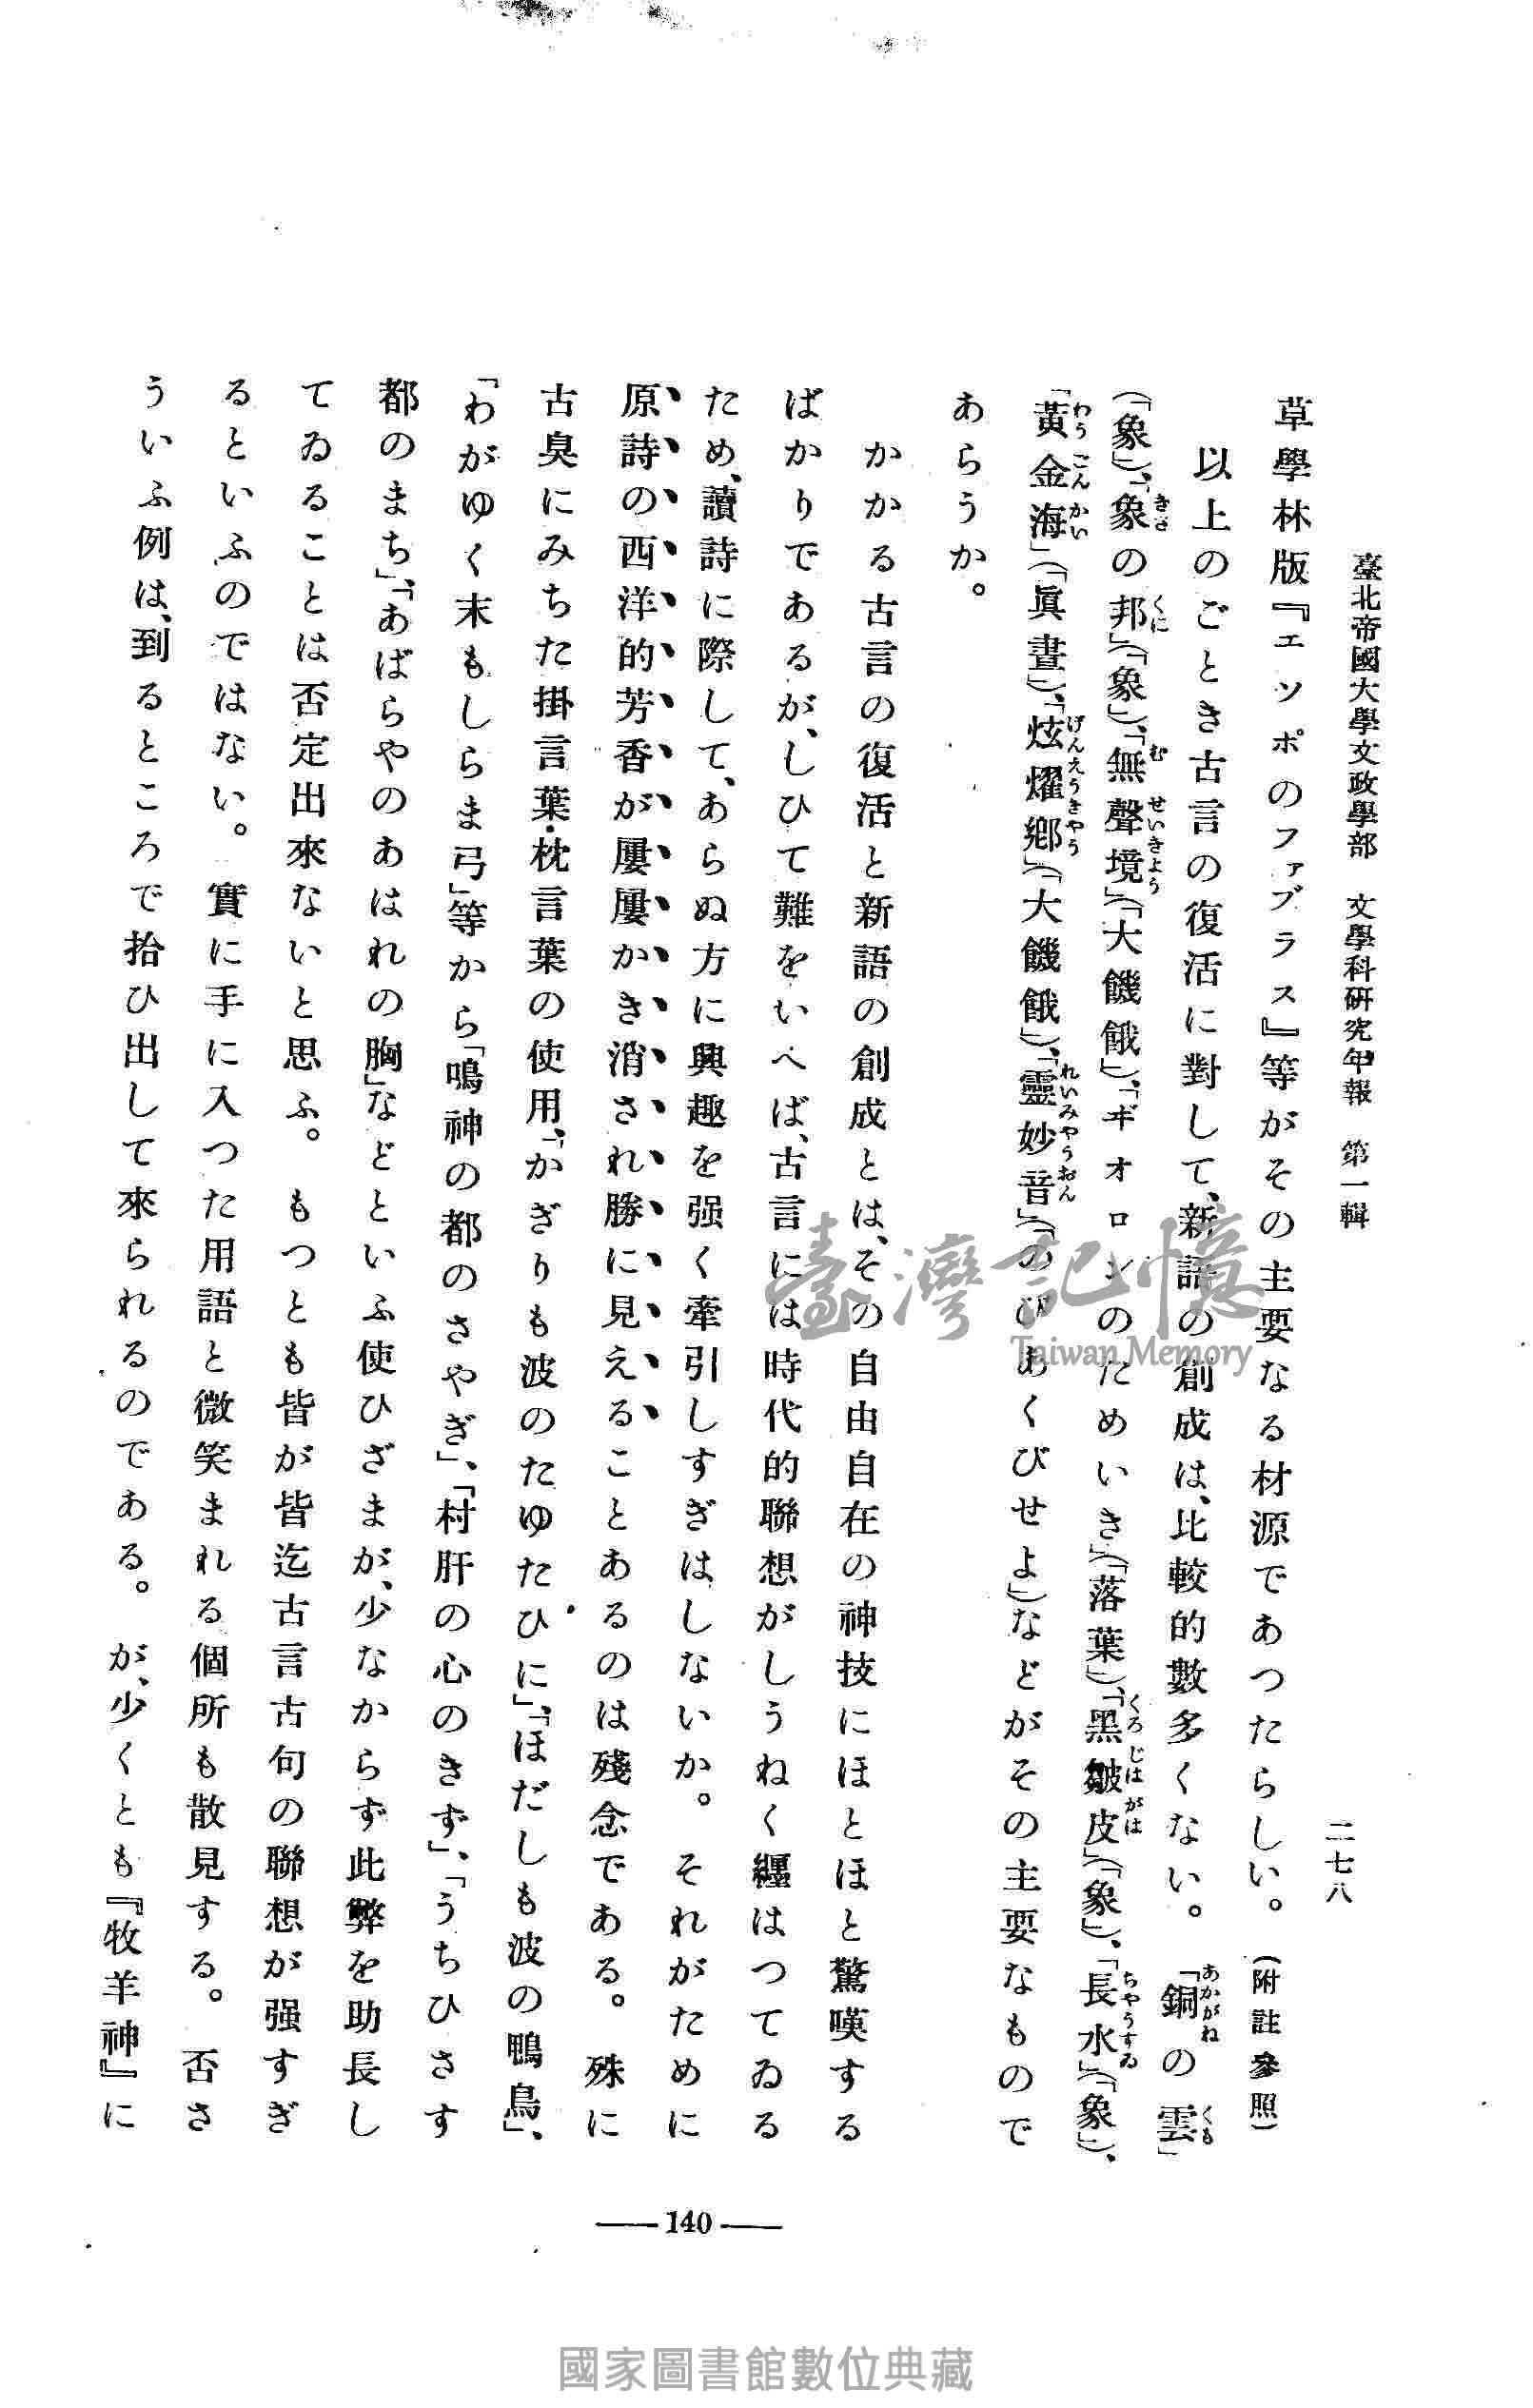 臺北帝國大學文政學部　文學科研究年報　第一輯
二七八
草學林版『エソポのファブラス』等がその主要なる材源であつたらしい。（附註參照）
以上のごとき古言の復活に對して、新語の創成は、比較的數多くない。「銅の雲」
（「象」）、「象の邦」（「象」）、「無聲境」（「大饑餓」）、「ギオロンのためいき」（「落葉」）、「黑皺皮」（「象」）、「長水」（「象」）、
「黃金海」（「眞晝」）、「炫燿鄕」（「大饑餓」）、「靈妙音」（「のびあくびせよ」）などがその主要なもので
あらうか。
かかる古言の復活と新語の創成とは、その自由自在の神技にほとほと驚嘆する
ばかりであるが、しひて難をいへば、古言には時代的聯想がしうねく纒はつてゐる
ため、讀詩に際して、あらぬ方に興趣を强く牽引しすぎはしないか。それがために
原詩の西洋的芳香が屢屢かき消され勝に見えることあるのは殘念である。殊に
古臭にみちた掛言葉・枕言葉の使用、「かぎりも波のたゆたひに」、「ほだしも波の鴨鳥」、
「わがゆく末もしらま弓」等から「鳴神の都のさやぎ」、「村肝の心のきず」、「うちひさす
都のまち」、「あばらやのあはれの胸」などといふ使ひざまが、少なからず此弊を助長し
てゐることは否定出來ないと思ふ。もつとも皆が皆迄古言古句の聯想が强すぎ
るといふのではない。實に手に入つた用語と微笑まれる個所も散見する。否さ
ういふ例は、到るところで拾ひ出して來られるのである。が、少くとも『牧羊神』に
140
臺灣記憶
Taiwan Memory
國家圖書館數位典藏
あかがね
くも
きさ
くに
む
せいきよう
くろ
じは
がは
ちやうすゐ
わう
ごん
かい
げんえうきやう
れいみやうおん